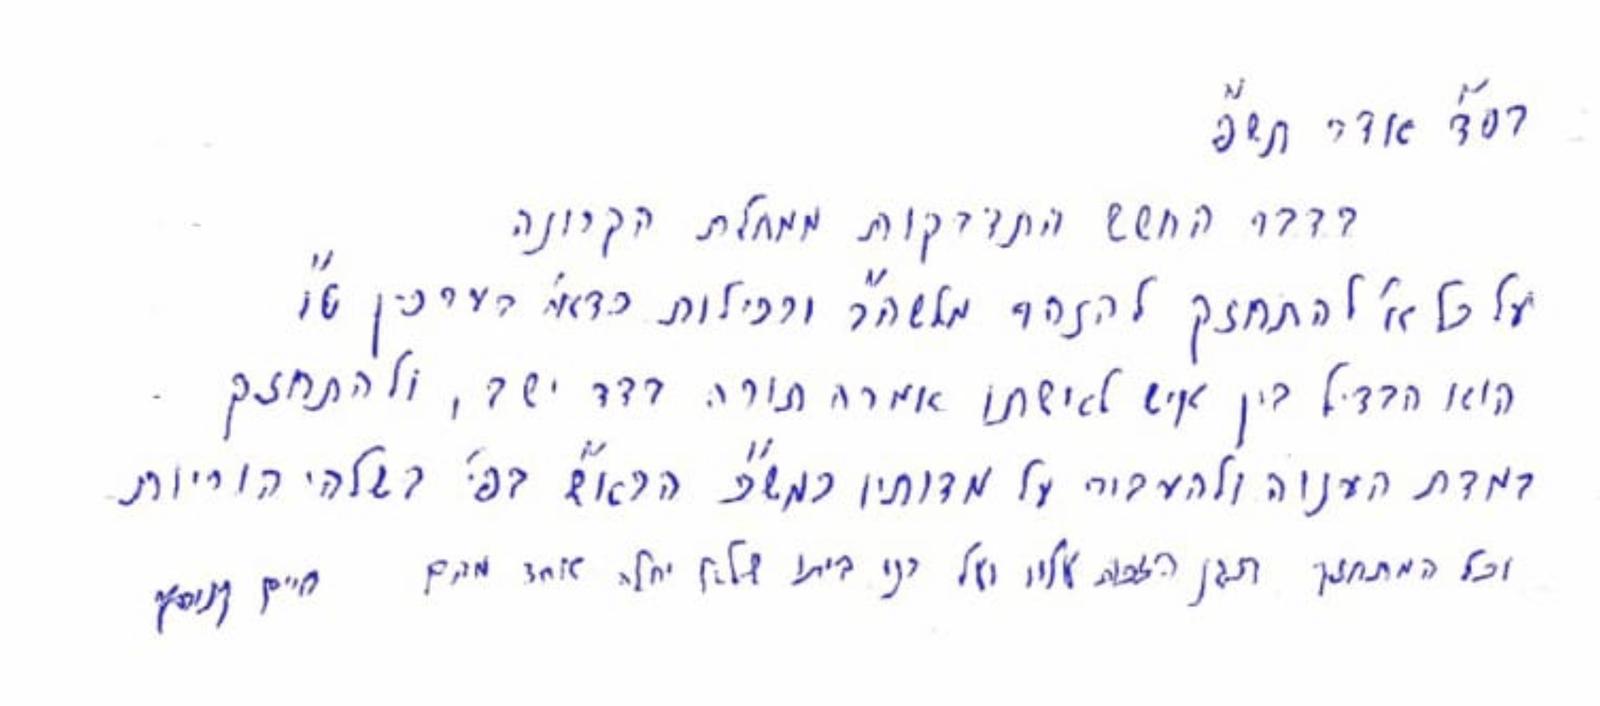 בס״ד אדר תש״פ
בדבר החשש התדבקות ממחלת הקרונה
על כל א׳ להתחזק להזהר מלשה״ר ורכילות כדאי׳ בערכין ט״ו
הוא הבדיל בין איש לאישתו אמרה תורה בדד ישב, ולהתחזק
במדת הענוה ולהעביר על מדותיו כמש״כ הרא״ש בפי׳ בשלהי הוריות
וכל המתחזק תגן הזכות עליו ועל בני ביתו שלא יחלה אחד מהם חיים קניבסקי